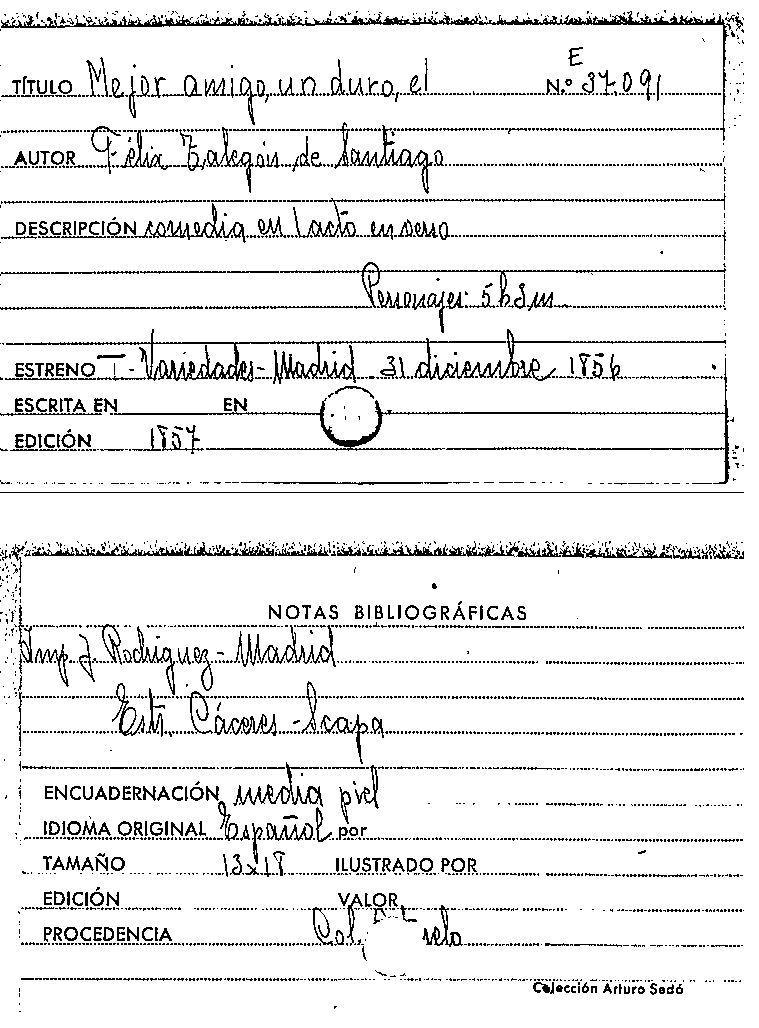 E
TÍTULO Mejor amigo, un duro, el N.º 37.091
AUTOR Félix Talegón de Santiago
DESCRIPCIÓN comedia en 1 acto en verso
Personajes: 5h 3m
ESTRENO T - Variedades - Madrid 31 diciembre 1856
ESCRITA EN EN
EDICIÓN 1857
NOTAS BIBLIOGRÁFICAS
Imp. J. Rodriguez - Madrid
Estr. Cáceres -
ENCUADERNACIÓN media piel
IDIOMA ORIGINAL Español por
TAMAÑO 13x18 ILUSTRADO POR
EDICIÓN VALOR
PROCEDENCIA Col.
Colección Arturo Sedó